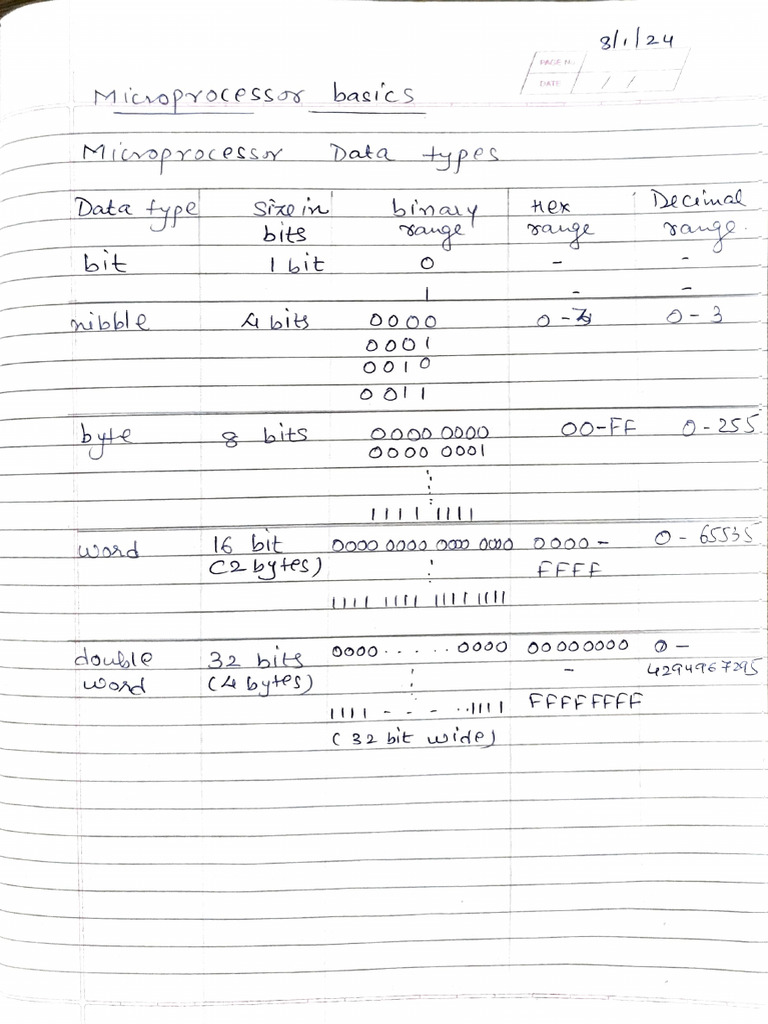 8/1/24
PAGE N.
DATE / /
Microprocessor basics
Microprocessor Data types
Data type Size in binary Hex Decimal
bits range range range.
bit 1 bit 0 - -
1 - -
nibble 4 bits 0000 0 - 3 0 - 3
0001
0010
0011
byte 8 bits 0000 0000 00-FF 0 - 255
0000 0001
1111 1111
word 16 bit 0000 0000 0000 0000 0000 - 0 - 65535
(2 bytes) FFFF
1111 1111 1111 1111
double 32 bits 0000.....0000 00000000 0 -
word (4 bytes) - 4294967295
1111 - - - ..1111 FFFFFFFF
(32 bit wide)